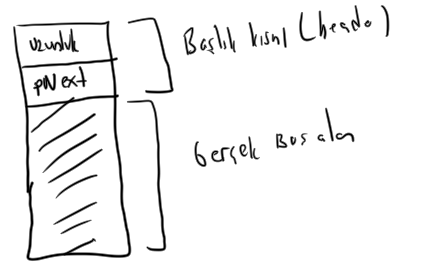 uzunluk
pNext
Başlık kısmı (heade)
Gerçek Bos alan